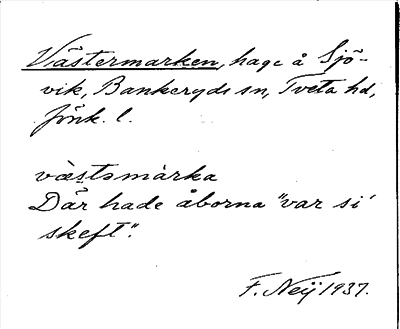 Västermarken, hage å Sjö-
vik, Bankeryds sn, Tveta hd,
Jönk. l.
væ̀stəmàrka
Där hade åborna "var si
skeft".
F. Neij 1937.